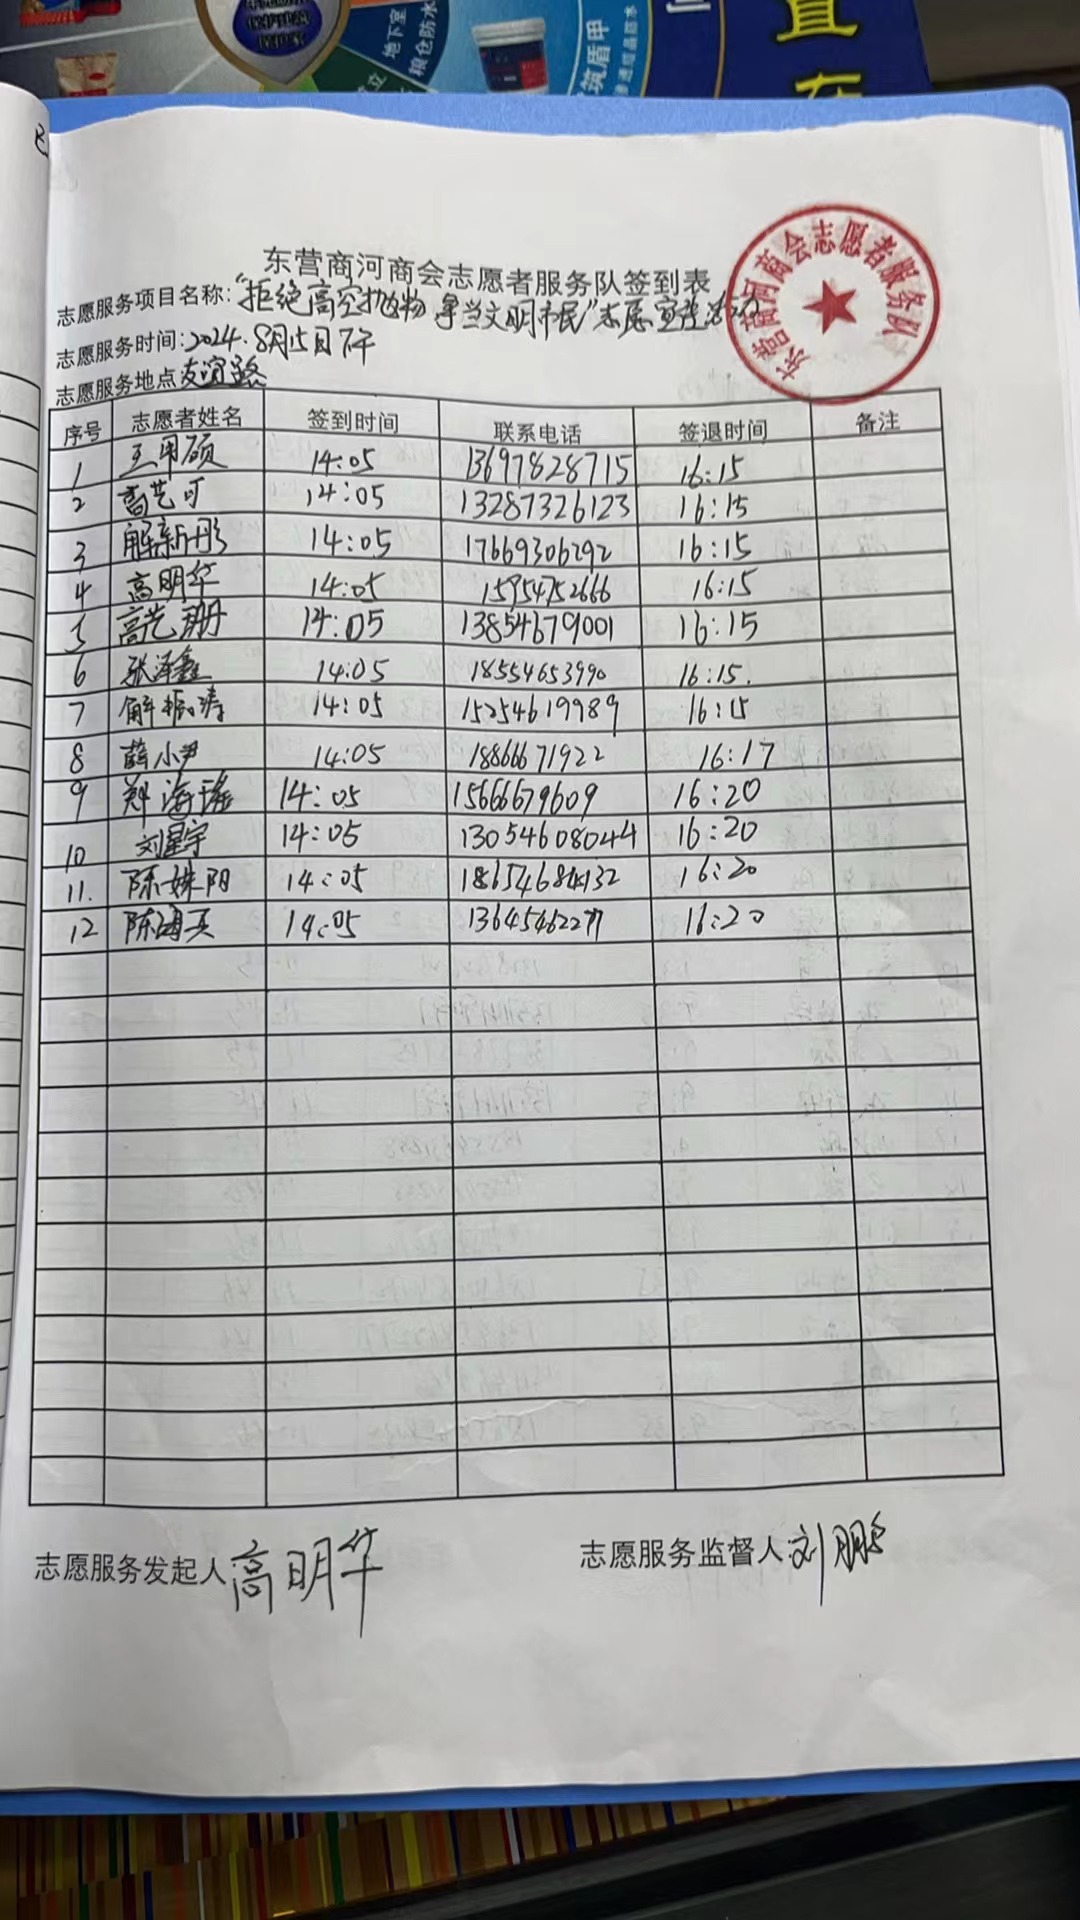 地下室
粮仓防水
立
筑盾甲
渗透结晶防水
直
在
东营商河商会志愿者服务队
东营商河商会志愿者服务队签到表
志愿服务项目名称:"拒绝高空抛物 争当文明市民"志愿宣传活动
志愿服务时间:2024.8月15日下午
志愿服务地点 友谊路
序号 志愿者姓名 签到时间 联系电话 签退时间 备注
1 王用硕 14:05 13697828715 16:15
2 高艺可 14:05 13287326123 16:15
3 解新彤 14:05 17669306292 16:15
4 高明华 14:05 15954752666 16:15
5 高艺珊 14:05 13854679001 16:15
6 张泽鑫 14:05 18554653990 16:15.
7 解振涛 14:05 15254619989 16:15
8 薛小尹 14:05 18866671922 16:17
9 郑海瑶 14:05 15666679609 16:20
10 刘星宇 14:05 13054608044 16:20
11. 陈姝阳 14:05 16:20
12 陈海英 14:05 16:20
志愿服务发起人 高明华
志愿服务监督人 刘鹏